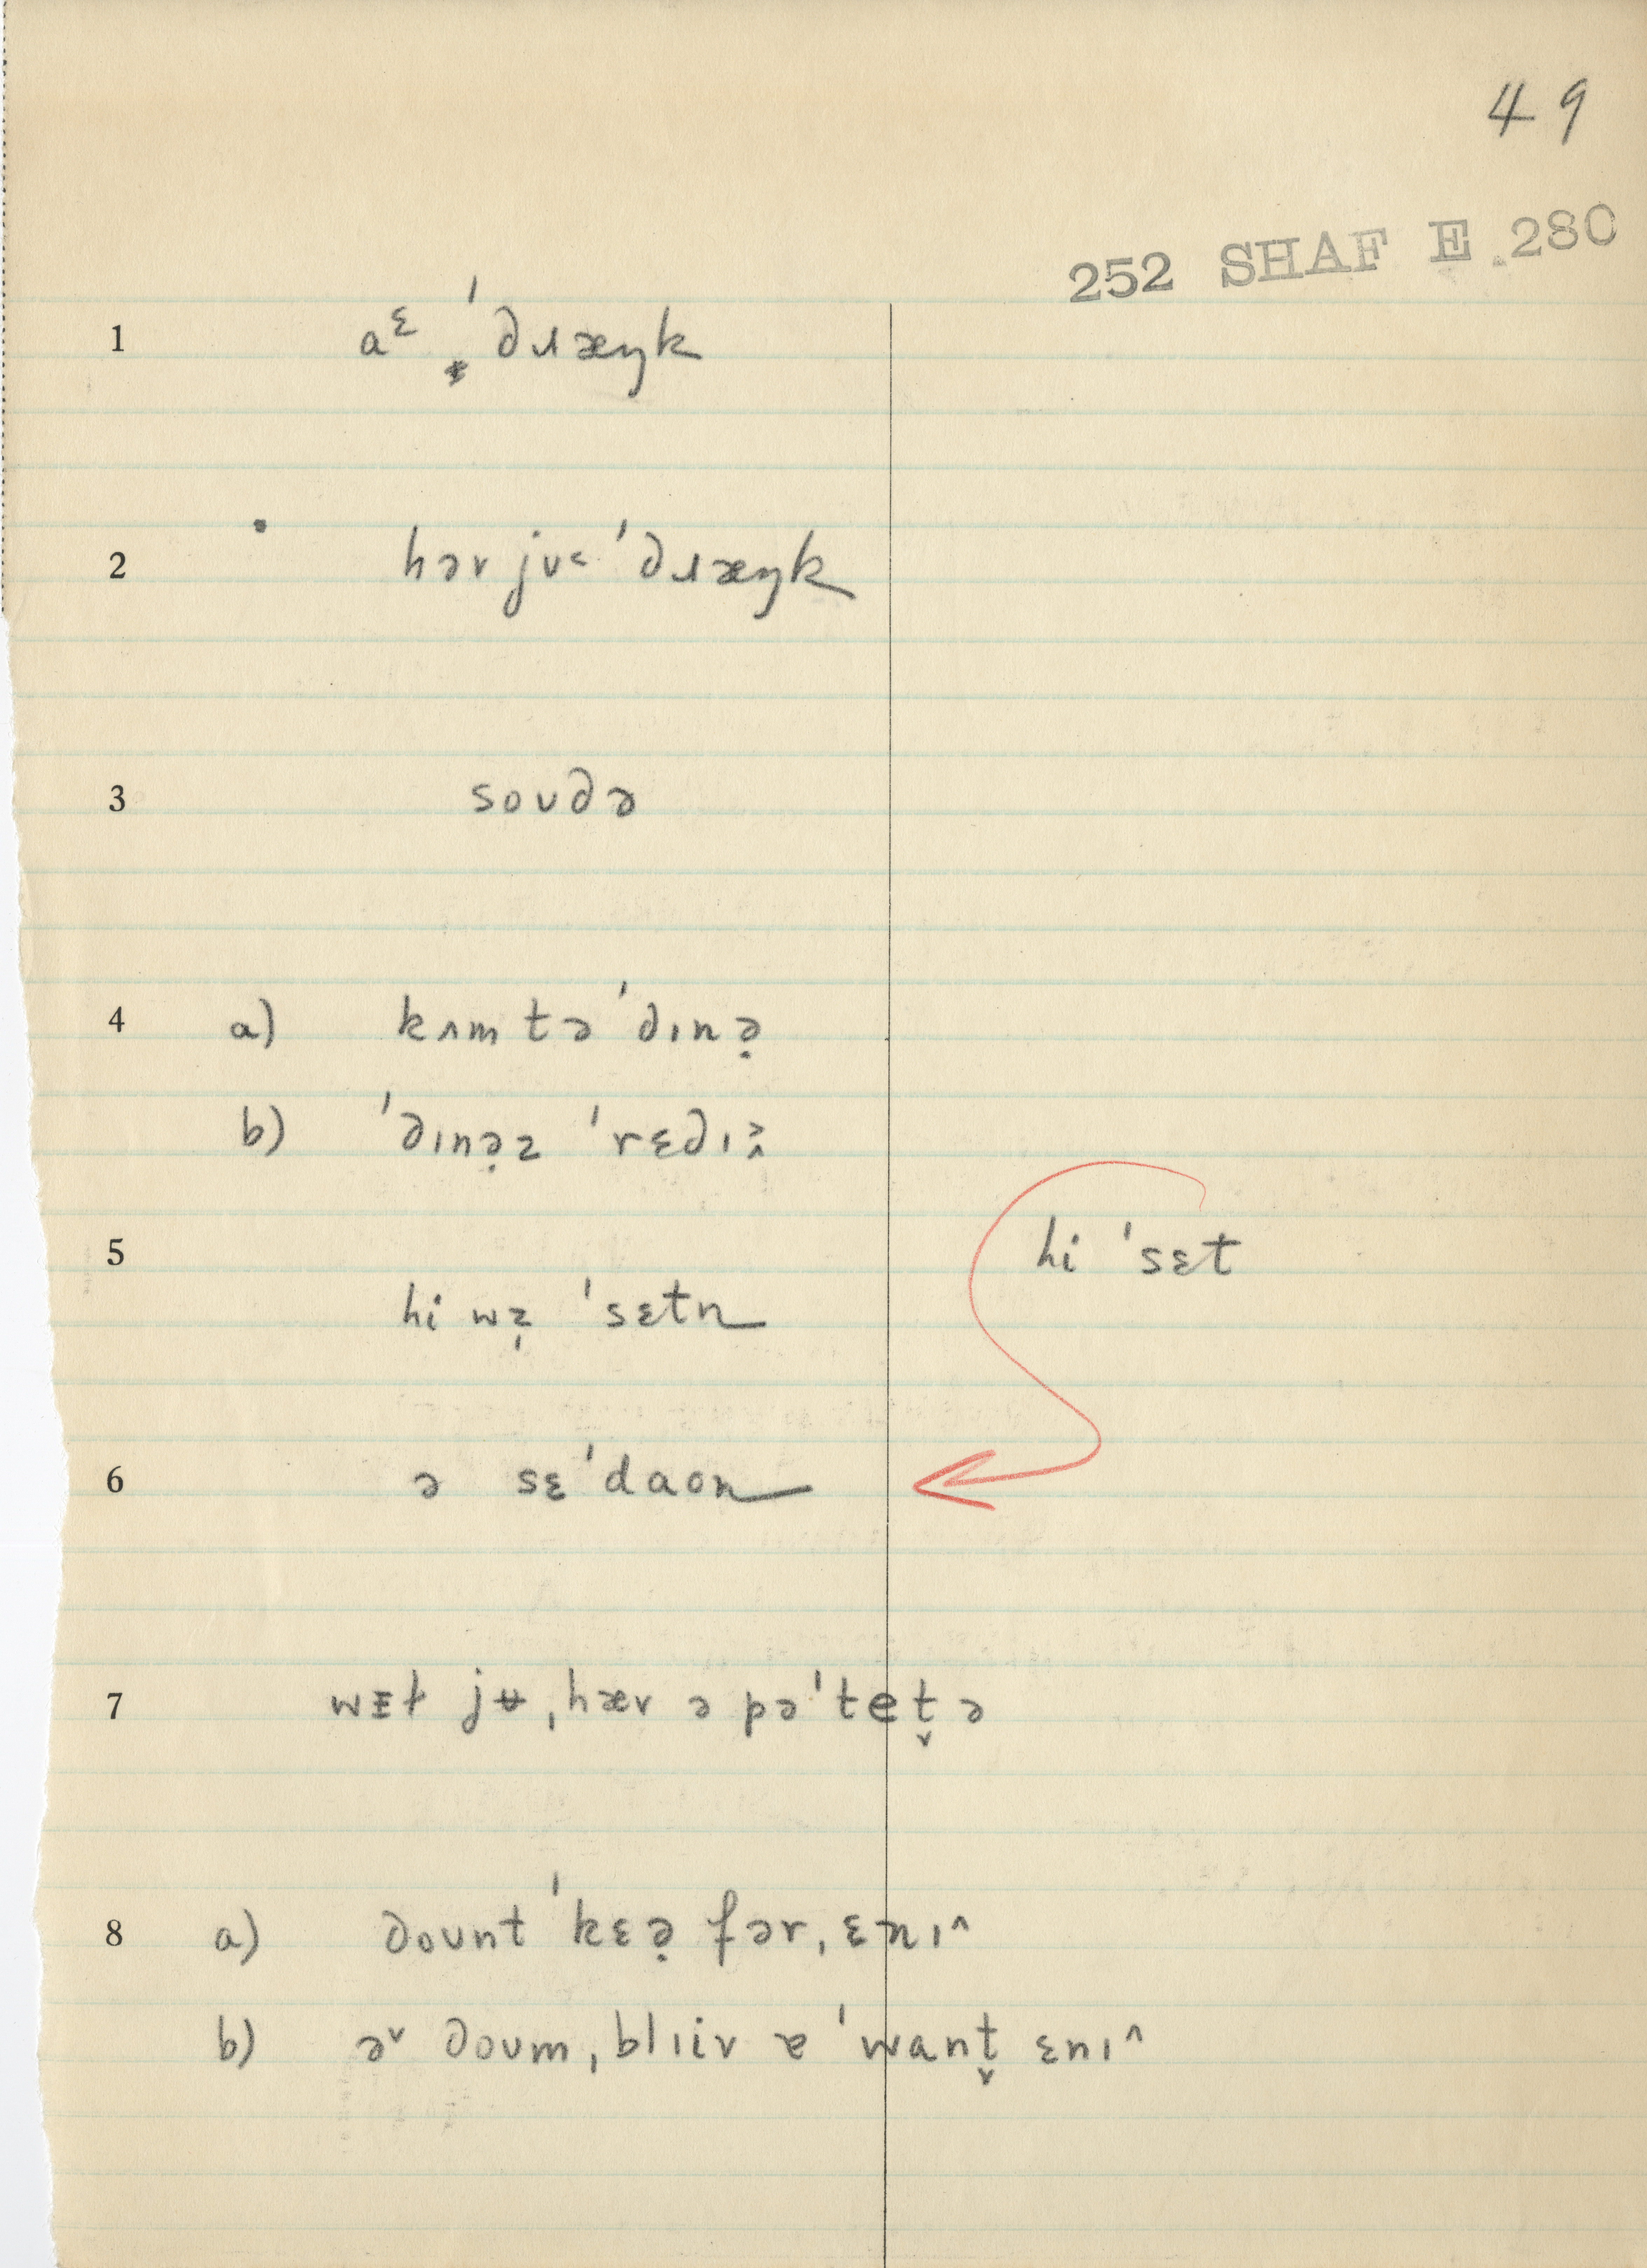 49
252 SHAF E 280
1 aᵋ ˈdɹæŋk
2 həv jʊᵋ ˈdɹæŋk
3 soʊdə
4 a) kʌm tə ˈdɪnə̣
b) ˈdɪnə̣z ˈrɛdɪ˄˃
5 hi ˈsɛt
hi wz̩ ˈsɛtn
6 ə sɛˈdaʊn
7 wᵻɫ jʉ ˌhæv ə pəˈtet̬ ə
8 a) doʊnt ˈkɛə̣ fər ˌɛnɪ^
b) ə˅ doʊm ˌblɪiv ɐ ˈwant̬ ɛnɪ^